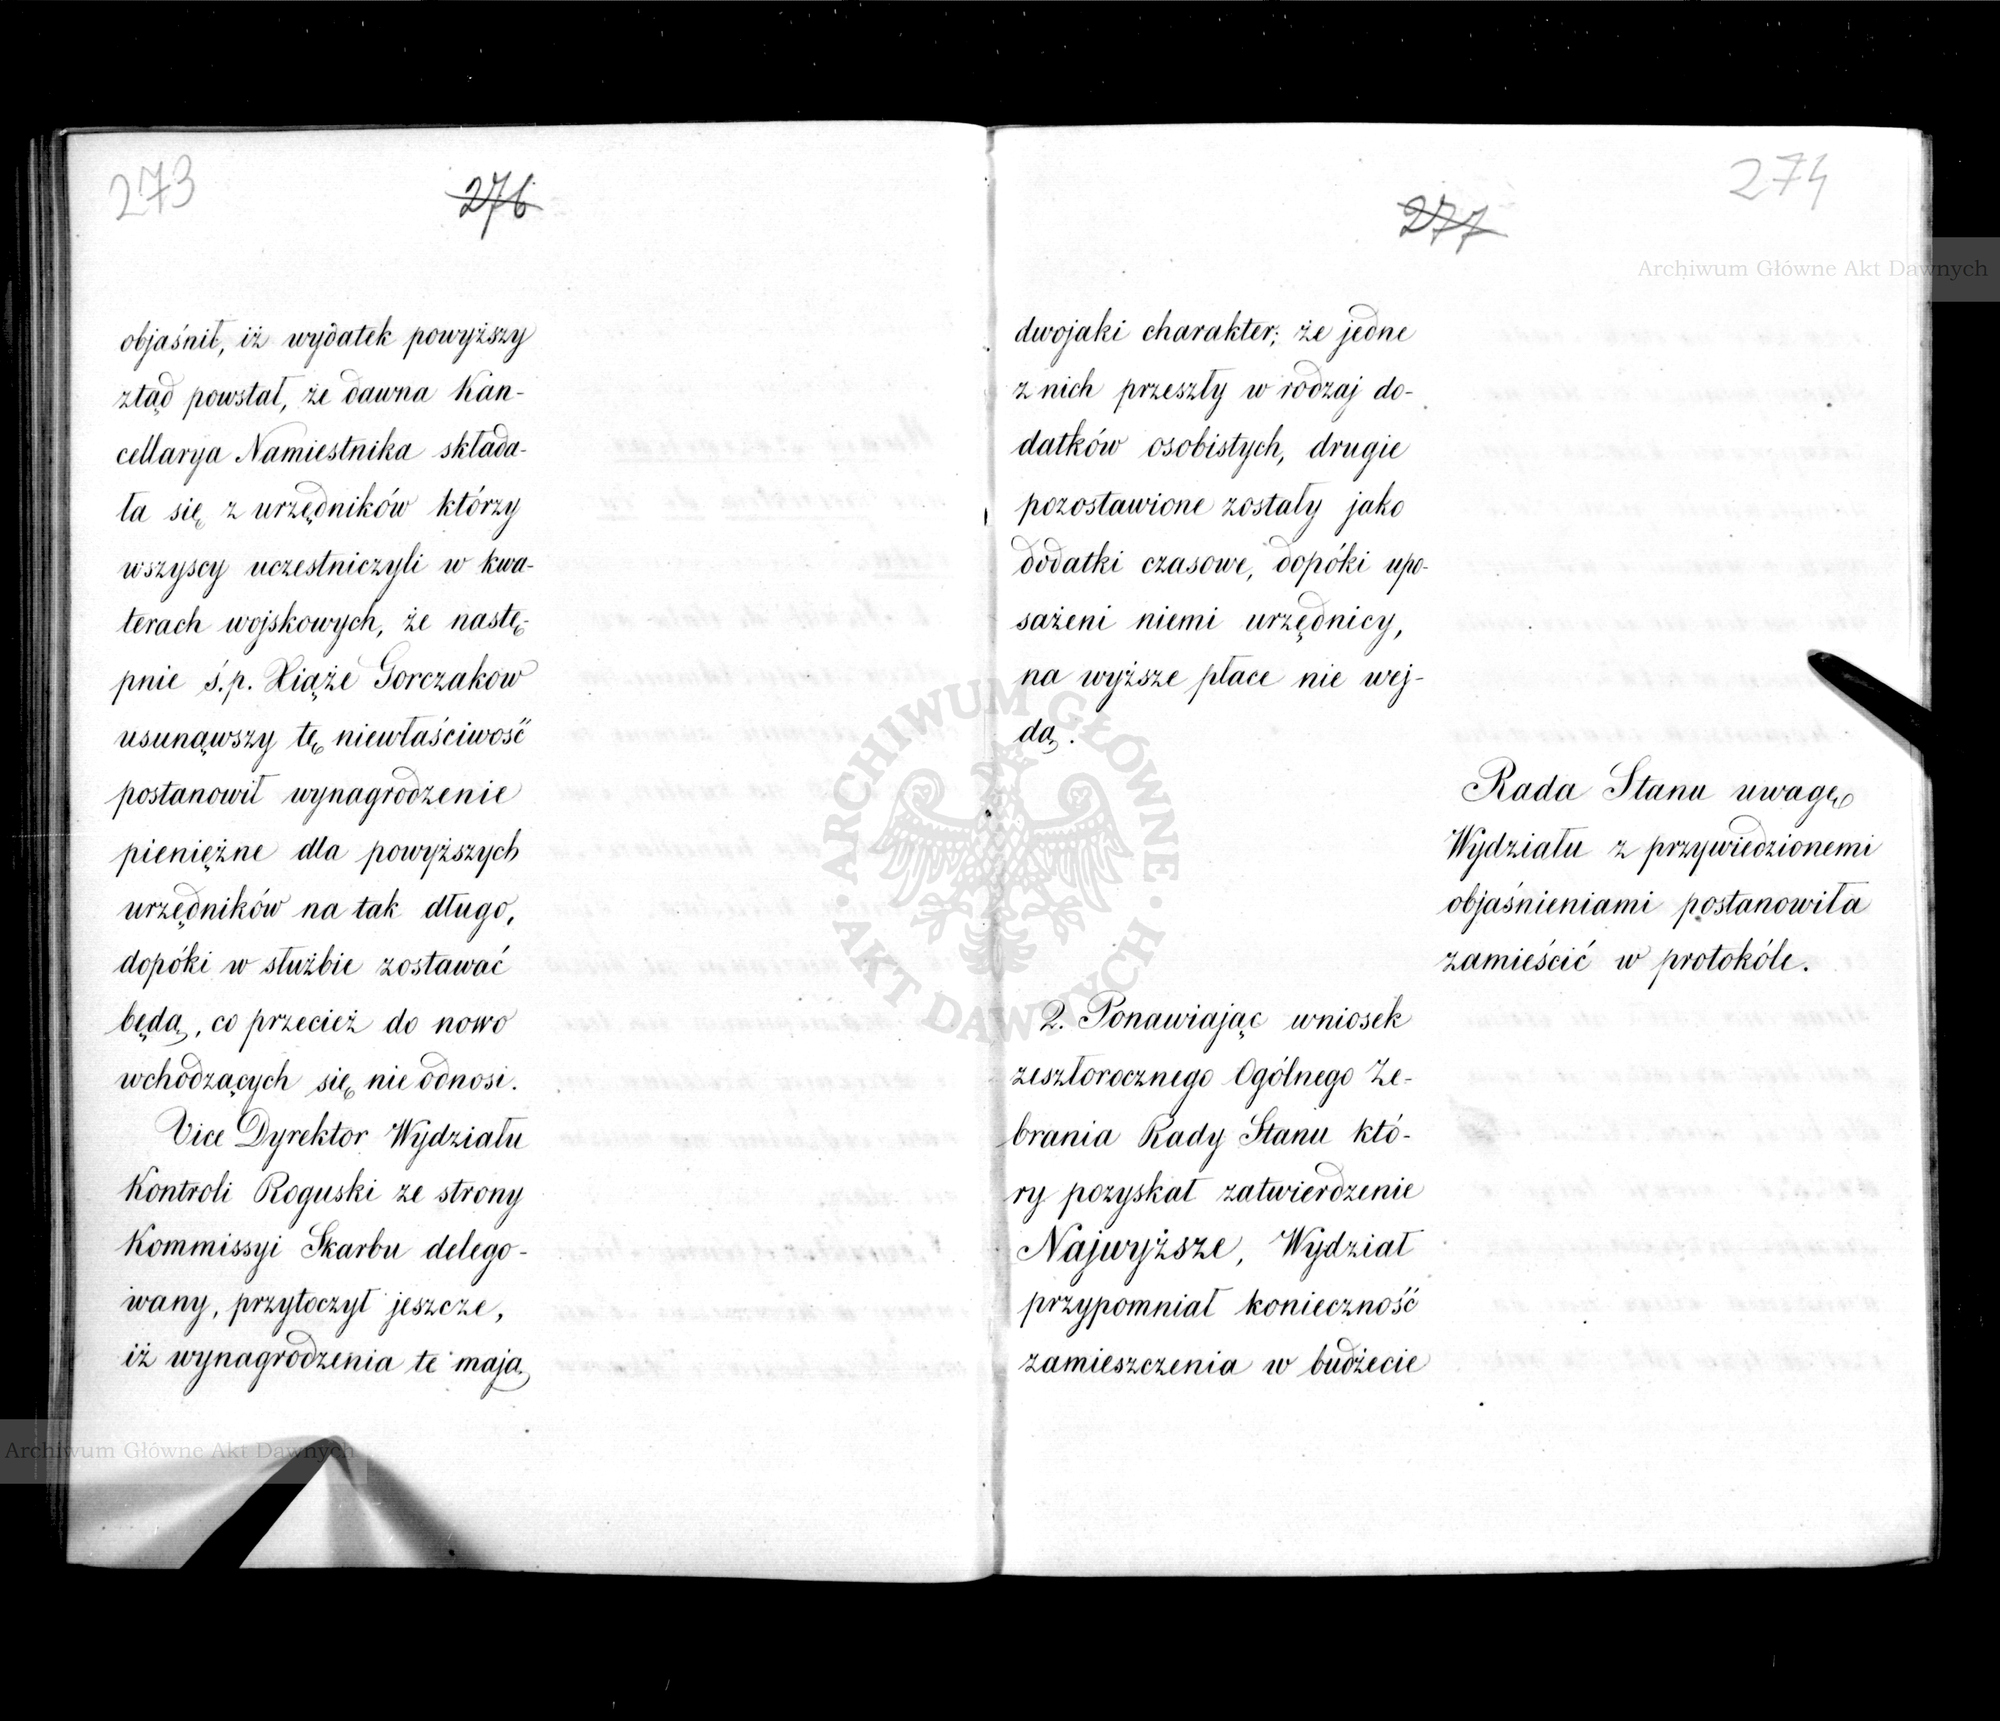 273
276
objaśnił, iż wydatek powyższy
ztąd powstał, że dawna Kan-
cellarya Namiestnika składa-
ła się z urzędników którzy
wszyscy uczestniczyli w kwa-
terach wojskowych, że nastę-
pnie ś.p. Xiąże Gorczakow
usunąwszy tę niewłaściwość
postanowił wynagrodzenie
pieniężne dla powyższych
urzędników na tak długo,
dopóki w służbie zostawać
będą, co przecież do nowo
wchodzących się nie odnosi.
Vice Dyrektor Wydziału
Kontroli Roguski ze strony
Kommissyi Skarbu delego-
wany, przytoczył jeszcze,
iż wynagrodzenia te mają
274
277
Archiwum Główne Akt Dawnych
dwojaki charakter; że jedne
z nich przeszły w rodzaj do-
datków osobistych, drugie
pozostawione zostały jako
dodatki czasowe, dopóki upo-
sażeni niemi urzędnicy,
na wyższe płace nie wej-
dą.
Rada Stanu uwagę
Wydziału z przywiedzionemi
objaśnieniami postanowiła
zamieścić w protokóle.
2. Ponawiając wniosek
zeszłorocznego Ogólnego Ze-
brania Rady Stanu któ-
ry pozyskał zatwierdzenie
Najwyższe, Wydział
przypomniał konieczność
zamieszczenia w budżecie
ARCHIWUM GŁÓWNE
AKT DAWNYCH
Archiwum Główne Akt Dawnych